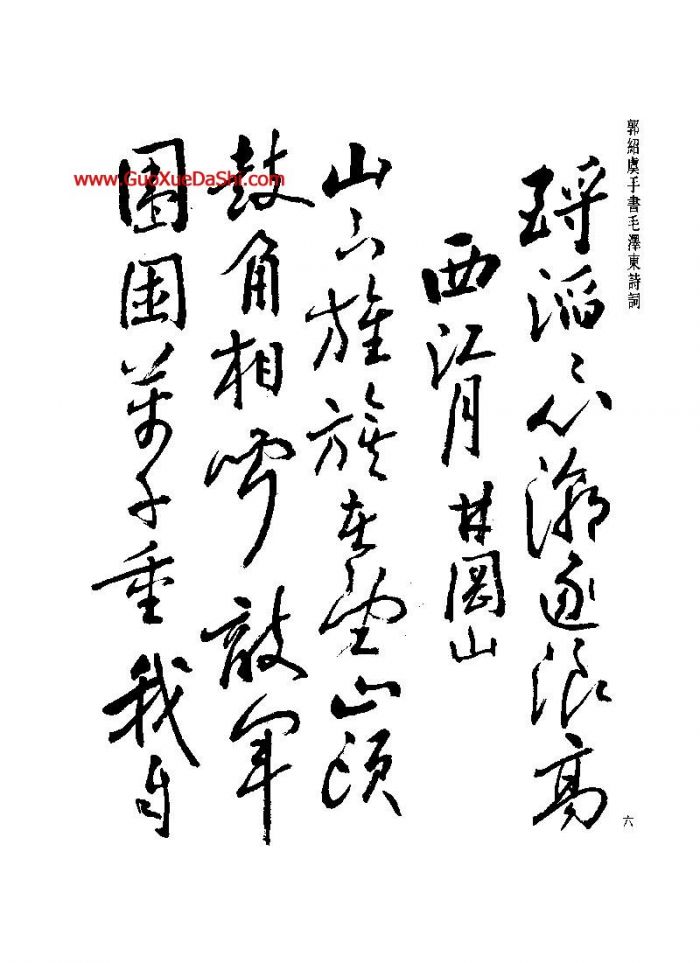 郭紹虞手書毛澤東詩詞
酹滔〻心潮逐浪高
西江月 井岡山
山下旌旗在望山頭
鼓角相聞敵軍
圍困萬千重我自
六
www.GuoXueDaShi.com